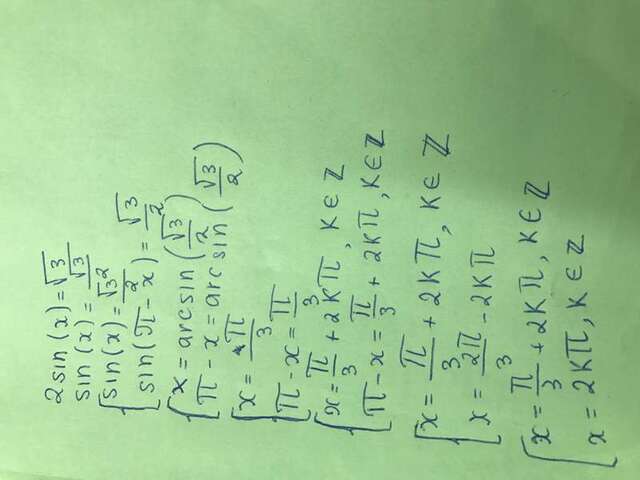 2sin(x)=√3
sin(x)=√3/2
{sin(x)=√3/2
sin(π-x)=√3/2
{x=arcsin(√3/2)
π-x=arcsin(√3/2)
{x=π/3
π-x=π/3
{x=π/3+2kπ, k∈ℤ
π-x=π/3+2kπ, k∈ℤ
{x=π/3+2kπ, k∈ℤ
x=2π/3-2kπ
{x=π/3+2kπ, k∈ℤ
x=2kπ, k∈ℤ